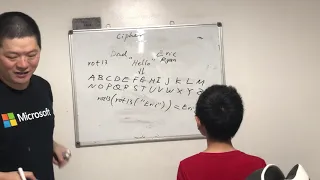 Cipher
Dad Eric
rot13 "Hello" Ryan
A B C D E F G H I J K L M
N O P Q R S T U V W X Y Z
rot13(rot13("Eric")) = Eric
Microsoft